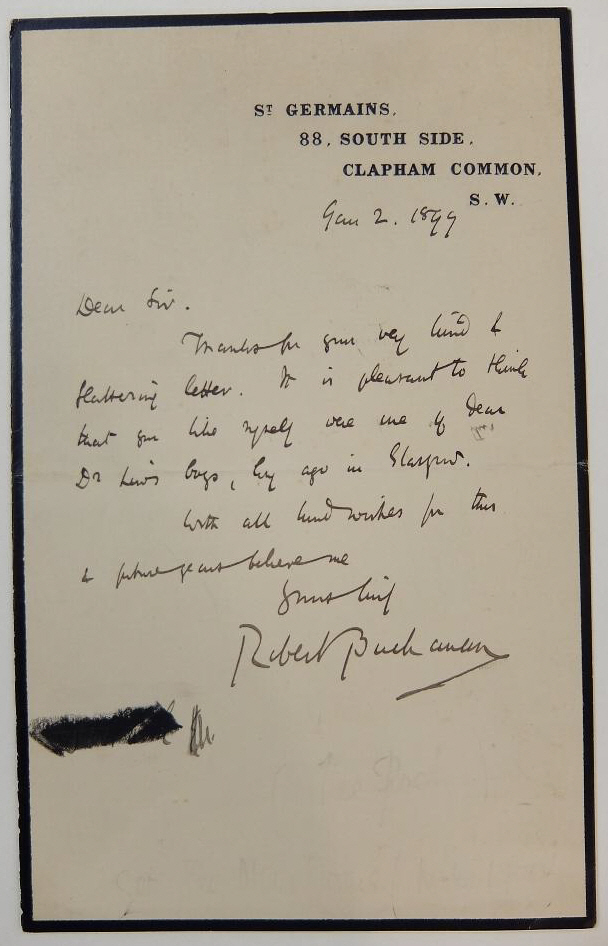 ST GERMAINS,
88, SOUTH SIDE,
CLAPHAM COMMON,
S.W.
Jan 2. 1899
Dear Sir.
Thanks for your very kind &
flattering letter. It is pleasant to think
that you like myself were one of dear
Dr Low's boys, long ago in Glasgow.
With all kind wishes for this
& future years believe me
Yours truly
Robert Buchanan